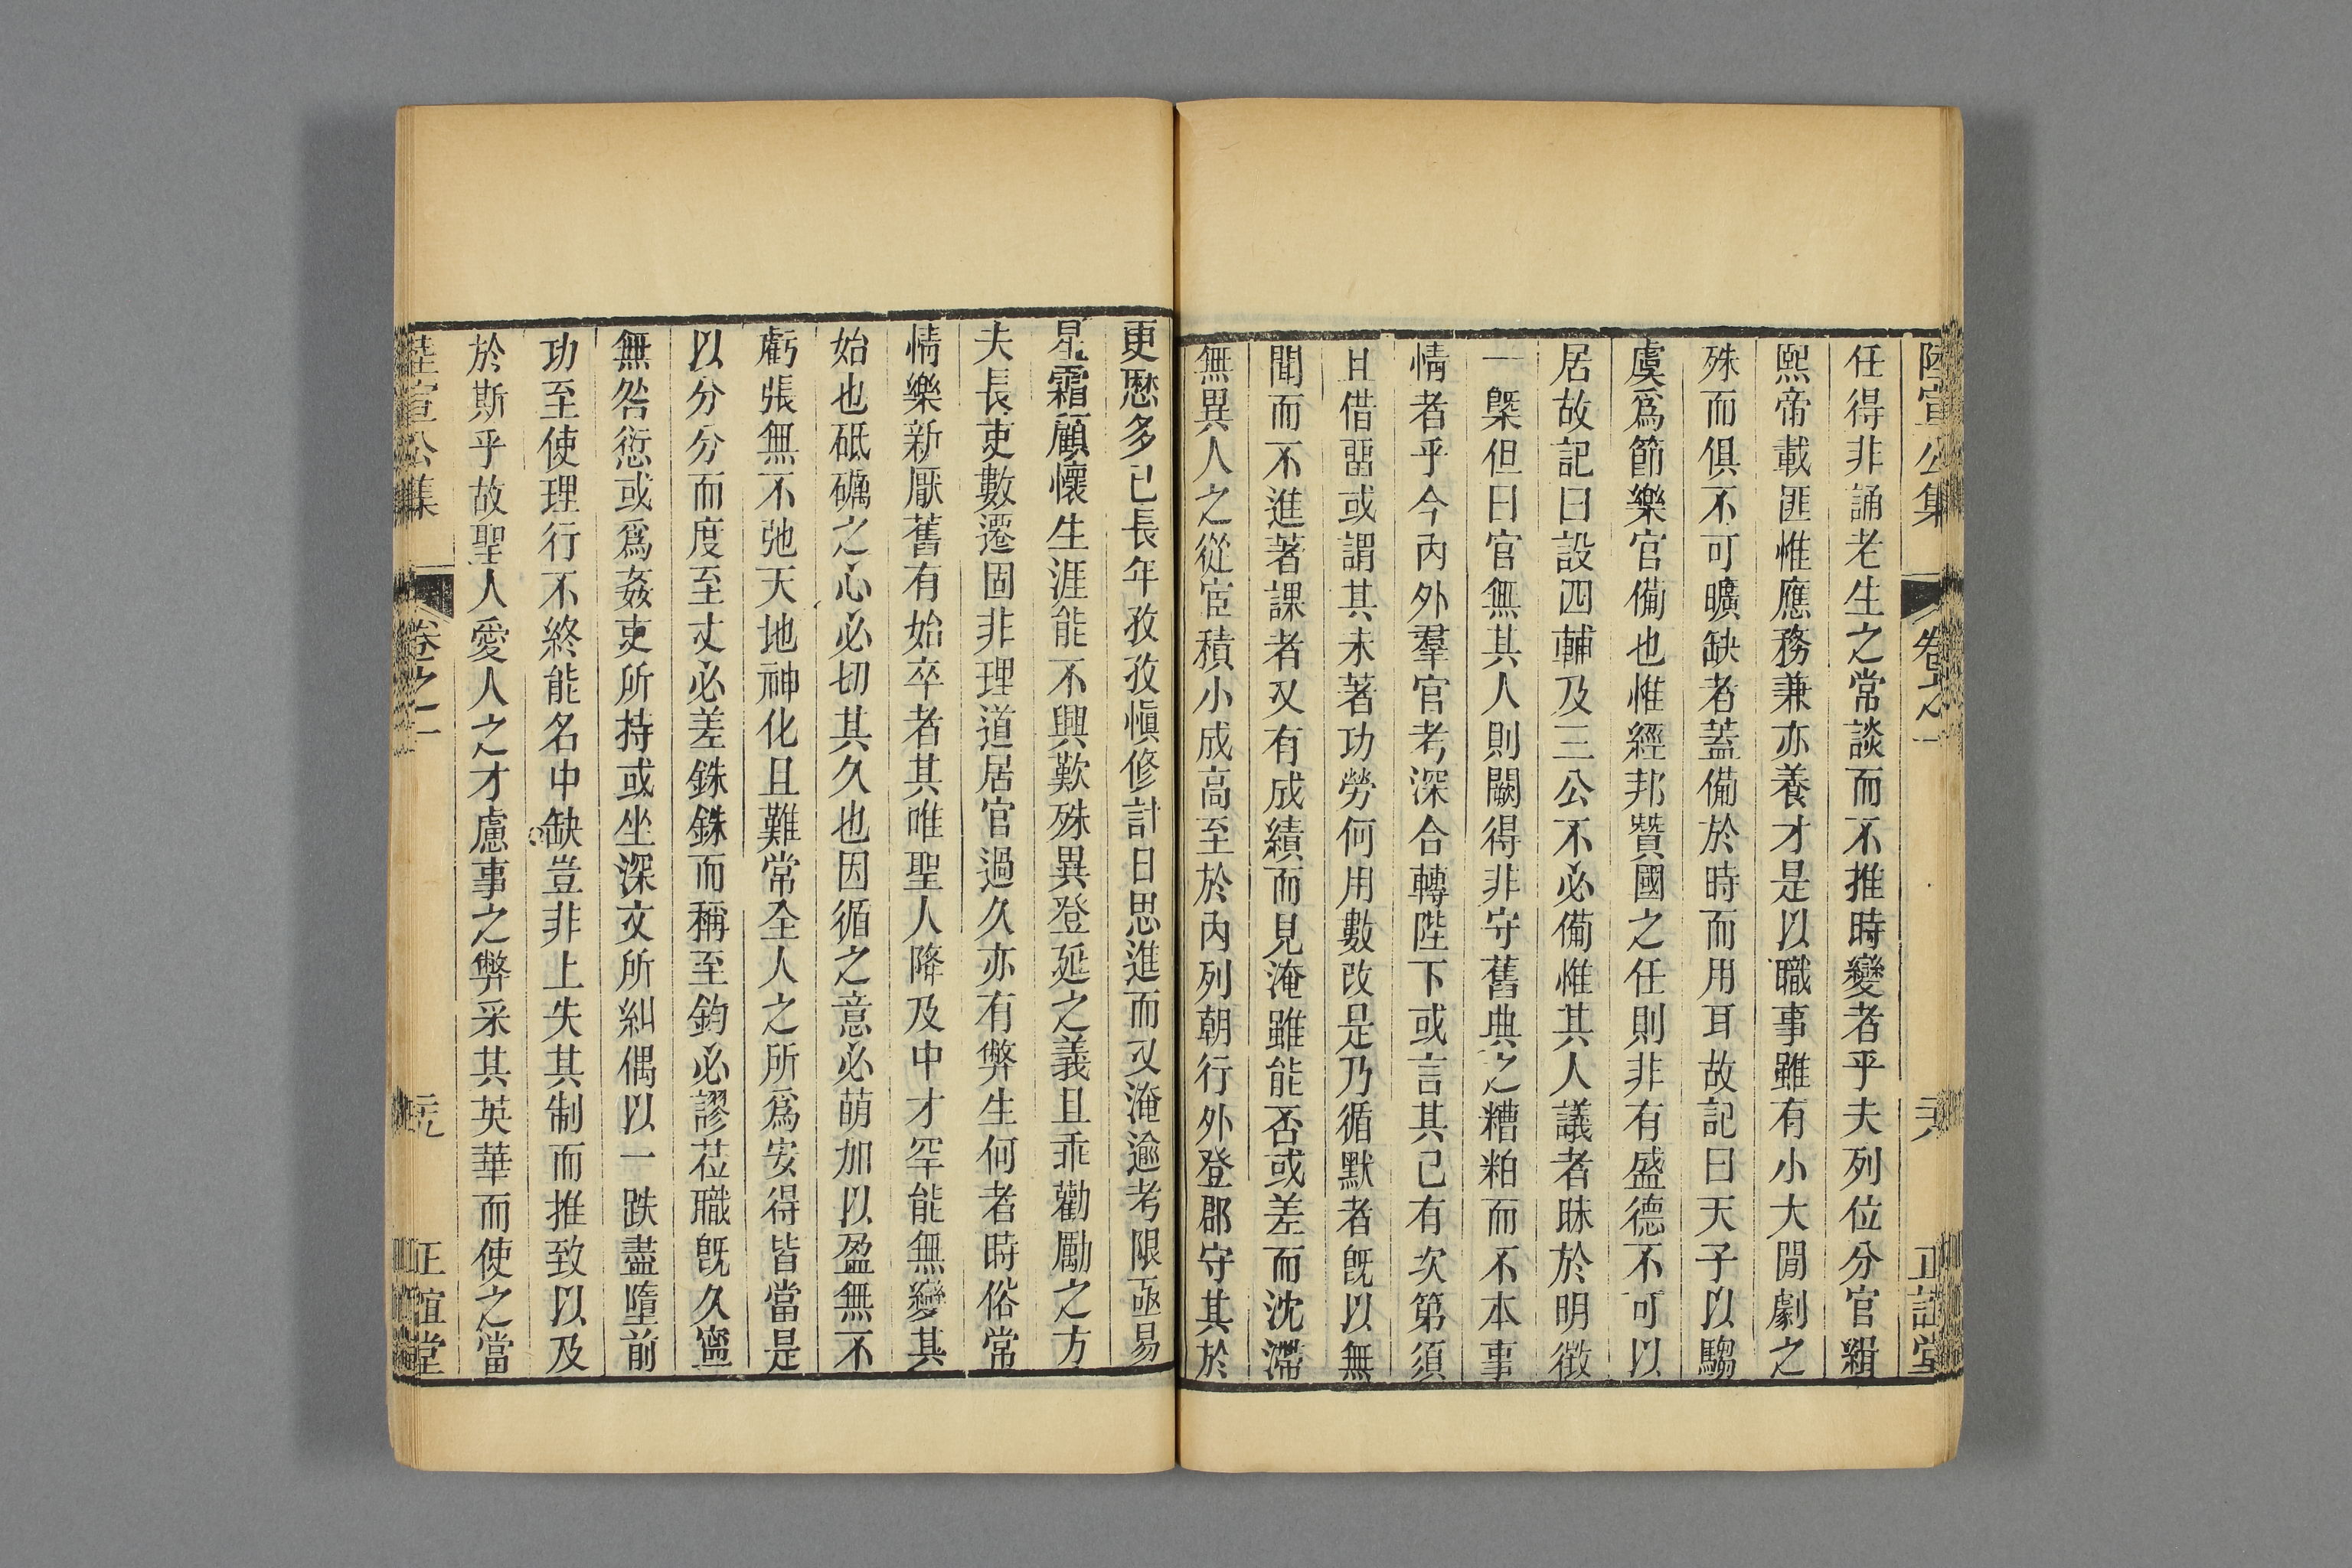 陸宣公集 卷之一 六 正誼堂
任得非誦老生之常談而不推時變者乎夫列位分官緝
熙帝載匪惟應務兼亦養才是以職事雖有小大閒劇之
殊而俱不可曠缺者蓋備於時而用耳故記曰天子以騶
虞爲節樂官備也惟經邦贊國之任則非有盛德不可以
居故記曰設四輔及三公不必備惟其人議者昧於明徵
一槩但曰官無其人則闕得非守舊典之糟粕而不本事
情者乎今內外羣官考深合轉陛下或言其已有次第須
且借畱或謂其未著功勞何用數改是乃循默者旣以無
聞而不進著課者又有成績而見淹雖能否或差而沈滯
無異人之從宦積小成高至於內列朝行外登郡守其於
更歷多已長年孜孜愼修計日思進而又淹逾考限亟易
星霜顧懷生涯能不興歎殊異登延之義且乖勸勵之方
夫長吏數遷固非理道居官過久亦有弊生何者時俗常
情樂新厭舊有始卒者其唯聖人降及中才罕能無變其
始也砥礪之心必切其久也因循之意必萌加以盈無不
虧張無不弛天地神化且難常全人之所爲安得皆當是
以分分而度至丈必差銖銖而稱至鈞必謬莅職旣久寧
無咎愆或爲姦吏所持或坐深文所糾偶以一跌盡墮前
功至使理行不終能名中缺豈非上失其制而推致以及
於斯乎故聖人愛人之才慮事之弊采其英華而使之當
陸宣公集 卷之一 正誼堂